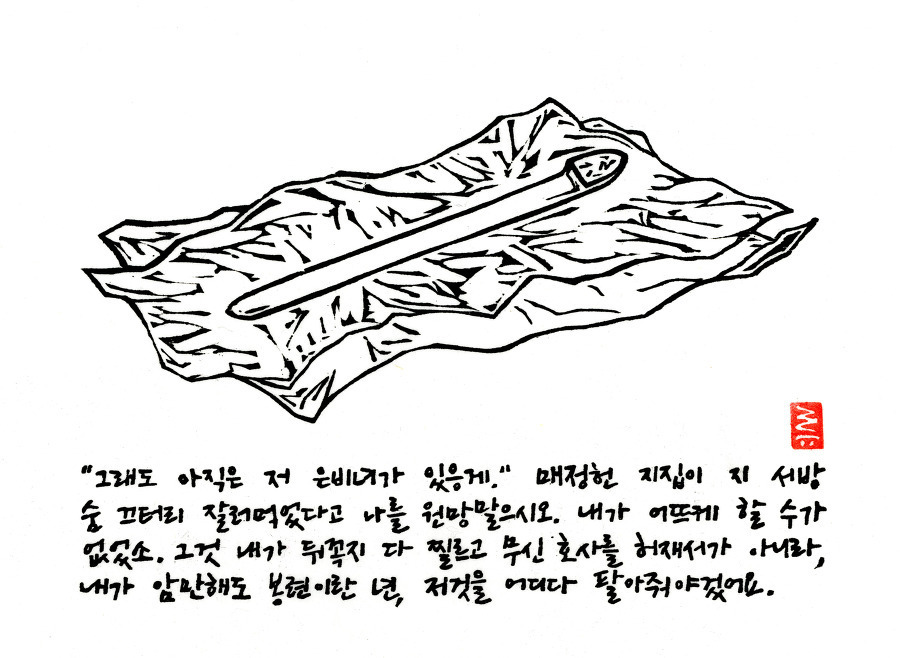 "그래도 아직은 저 은비녀가 있응게." 매정헌 지집이 지 서방
숨 끄터리 잘러먹었다고 나를 원망말으시오. 내가 어뜨케 할 수가
없었소. 그것 내가 뒤꼭지 다 찔르고 무신 호사를 허재서가 아니라,
내가 암만해도 봉련이란 년, 저것을 어디다 팔아줘야겄어요.